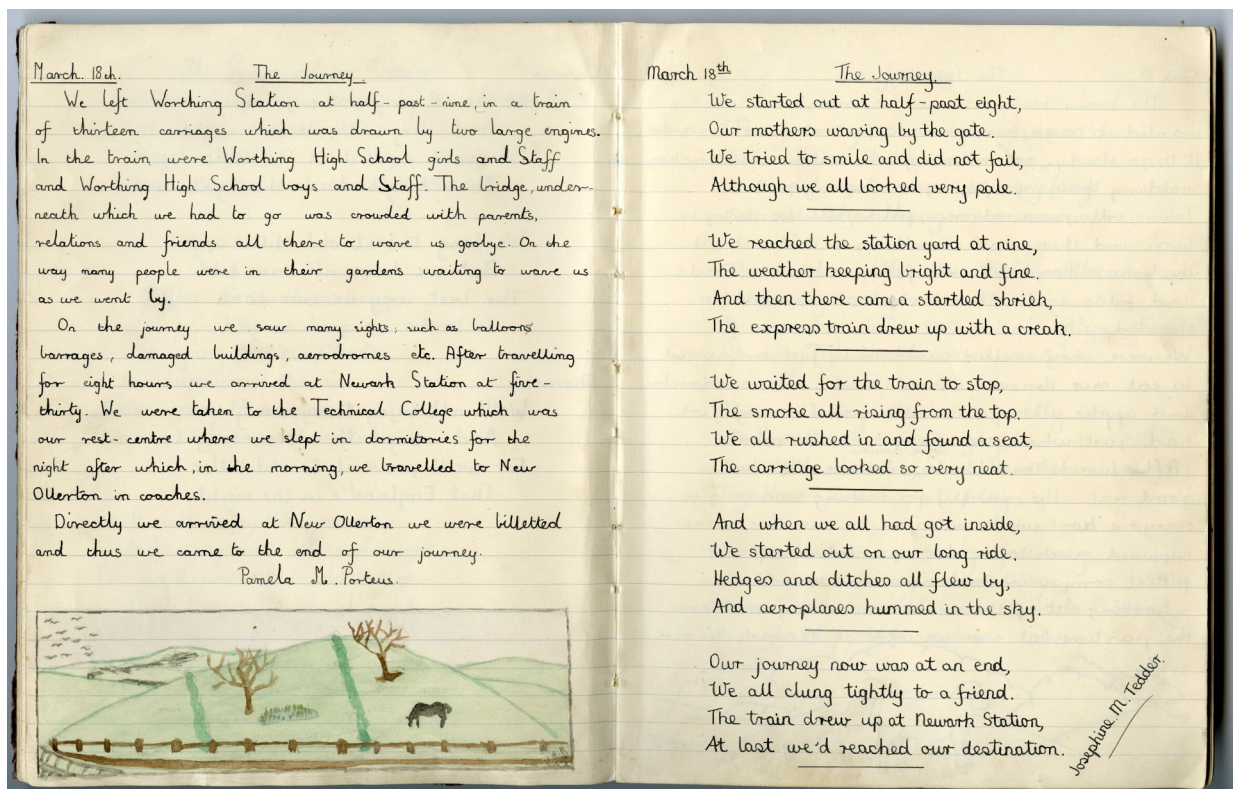 March. 18th. The Journey.
We left Worthing Station at half-past-nine, in a train
of thirteen carriages which was drawn by two large engines.
In the train were Worthing High School girls and Staff
and Worthing High School boys and Staff. The bridge, under-
neath which we had to go was crowded with parents,
relations and friends all there to wave us goobye. On the
way many people were in their gardens waiting to wave us
as we went by.
On the journey we saw many sights; such as balloons
barrages, damaged buildings, aerodromes etc. After travelling
for eight hours we arrived at Newark Station at five-
thirty. We were taken to the Technical College which was
our rest-centre where we slept in dormitories for the
night after which, in the morning, we travelled to New
Ollerton in coaches.
Directly we arrived at New Ollerton we were billetted
and thus we came to the end of our journey.
Pamela M. Porteus.
March 18th The Journey.
We started out at half-past eight,
Our mothers waving by the gate.
We tried to smile and did not fail,
Although we all looked very pale.
We reached the station yard at nine,
The weather keeping bright and fine.
And then there came a startled shriek,
The express train drew up with a creak.
We waited for the train to stop,
The smoke all rising from the top.
We all rushed in and found a seat,
The carriage looked so very neat.
And when we all had got inside,
We started out on our long ride.
Hedges and ditches all flew by,
And aeroplanes hummed in the sky.
Our journey now was at an end,
We all clung tightly to a friend.
The train drew up at Newark Station,
At last we'd reached our destination.
Josephine. M. Tedder.